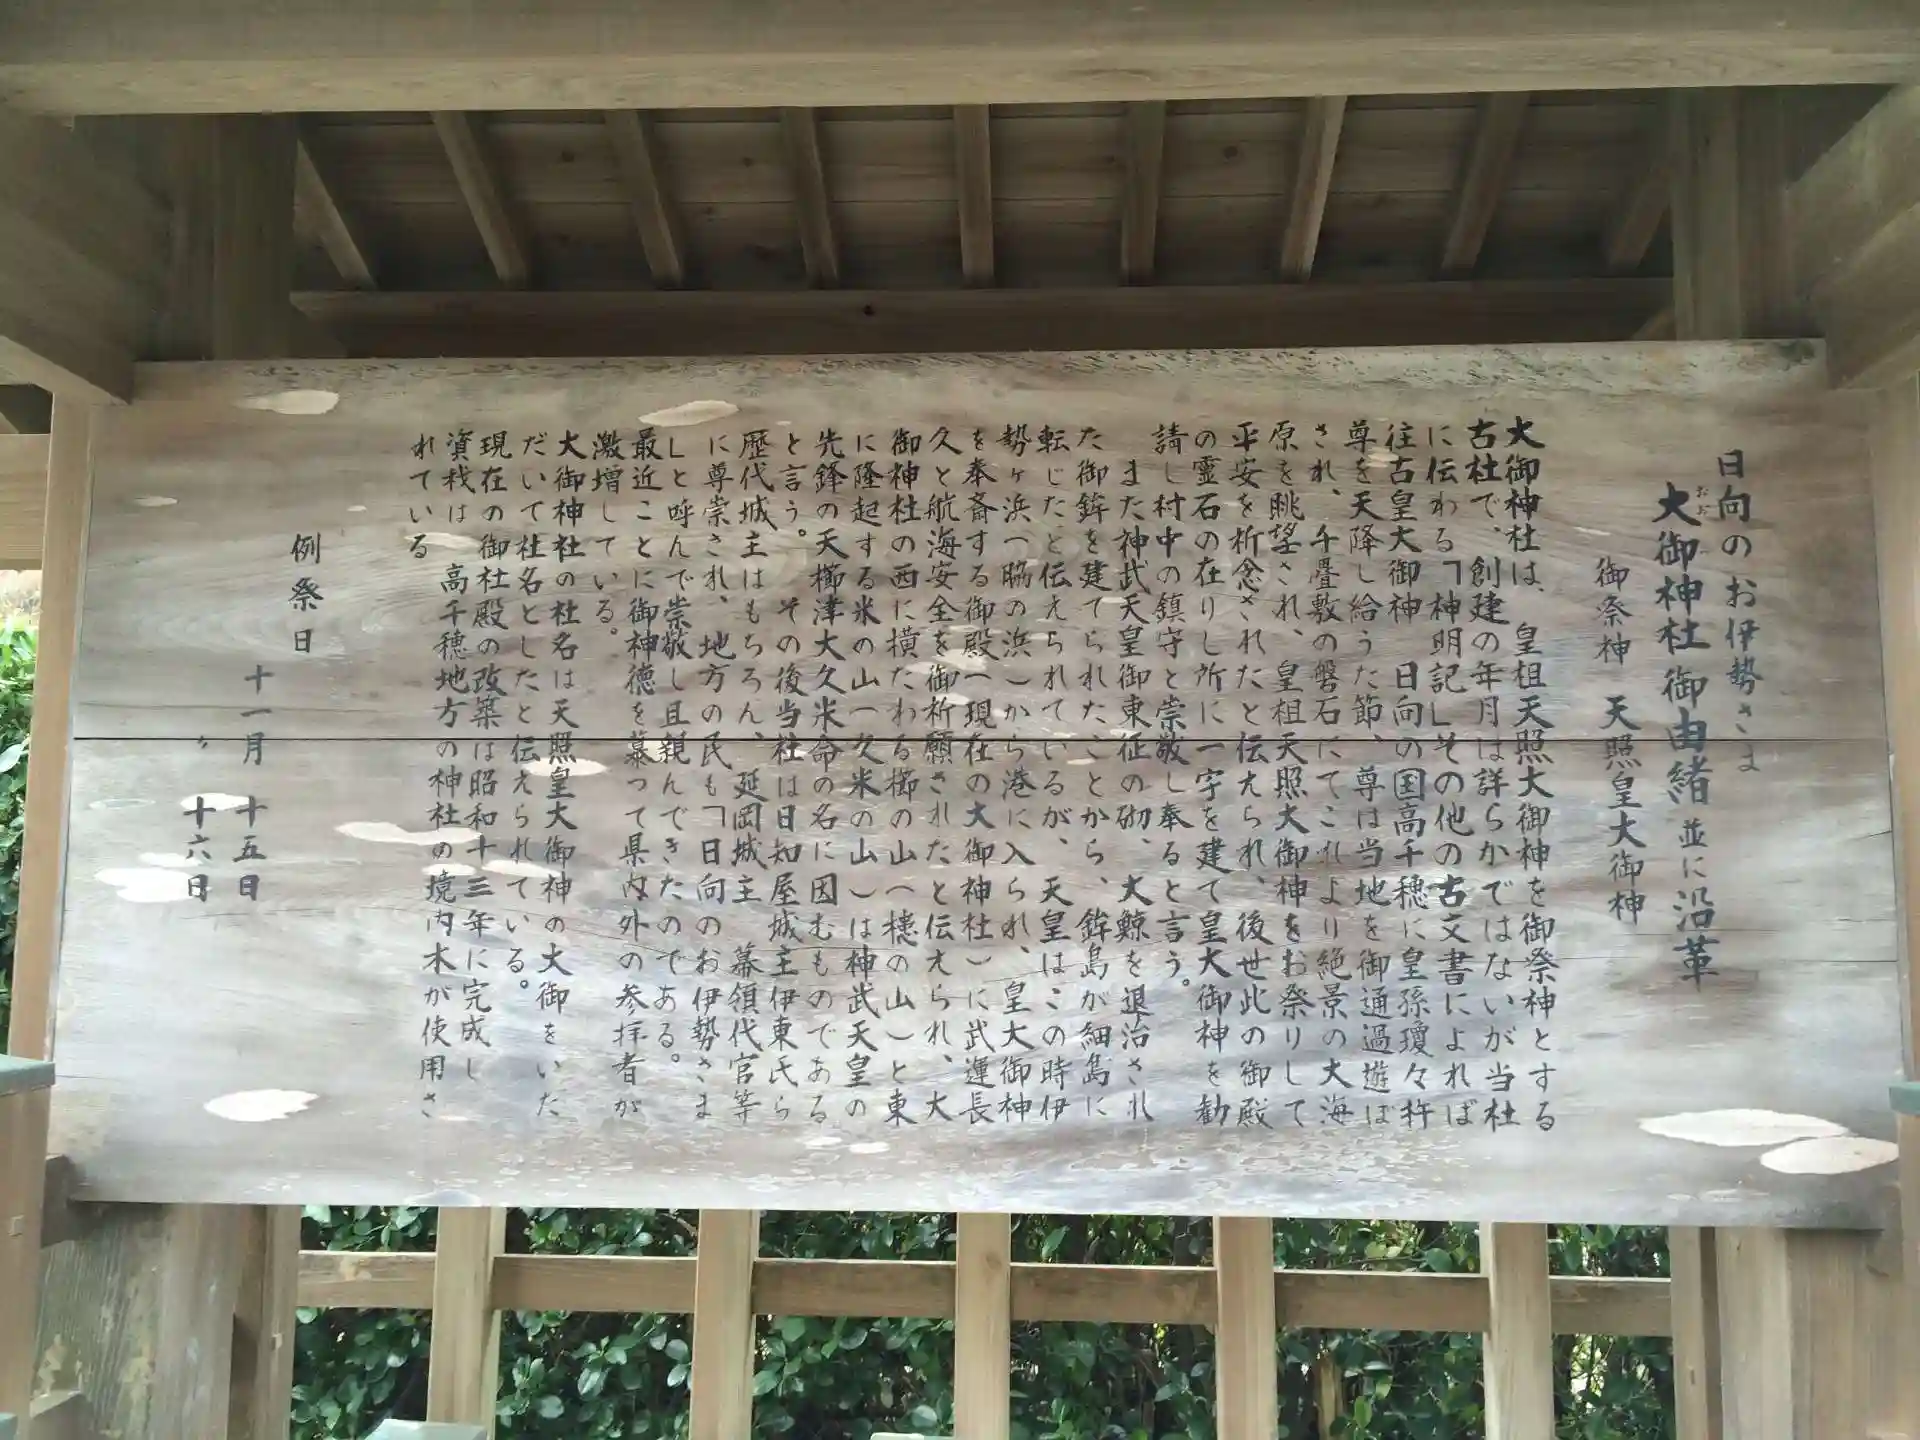 日向のお伊勢さま
大御神社御由緒並に沿革
おお み
御祭神 天照皇大御神
大御神社は、皇祖天照大御神を御祭神とする
古社で、創建の年月は詳らかではないが当社
に伝わる「神明記」その他の古文書によれば
往古皇大御神 日向の国高千穂に皇孫瓊々杵
尊を天降し給うた節、尊は当地を御通過遊ば
され、千畳敷の磐石にてこれより絶景の大海
原を眺望され、皇祖天照大御神をお祭りして
平安を祈念されたと伝えられ、後世此の御殿
の霊石の在りし所に一宇を建て皇大御神を勧
請し村中の鎮守と崇敬し奉ると言う。
また神武天皇御東征の砌、大鯨を退治され
た御鉾を建てられたことから、鉾島が細島に
転じたと伝えられているが、天皇はこの時伊
勢ヶ浜(脇の浜)から港に入られ、皇大御神
を奉斎する御殿(現在の大御神社)に武運長
久と航海安全を御祈願されたと伝えられ、大
御神社の西に横たわる櫛の山(樋の山)と東
に隆起する米の山(久米の山)は神武天皇の
先鋒の天櫛津大久米命の名に因むものである
と言う。その後当社は日知屋城主伊東氏ら
歴代城主はもちろん、延岡城主 幕領代官等
に尊崇され、地方の民も「日向のお伊勢さま
」と呼んで崇敬し且親んできたのである。
最近ことに御神徳を慕って県内外の参拝者が
激増している。
大御神社の社名は天照皇大御神の大御をいた
だいて社名としたと伝えられている。
現在の御社殿の改築は昭和十三年に完成し
資材は 高千穂地方の神社の境内木が使用さ
れている
例祭日
十一月 十五日
〃 十六日